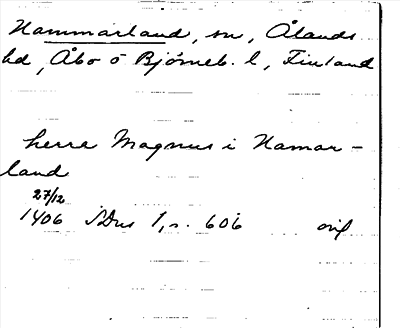 Hammarland, sn, Ålands
hd, Åbo o Björneb. l, Finland
herre Magnus i Hamar-
land
27/12
1406 SDns 1, s. 606 orig